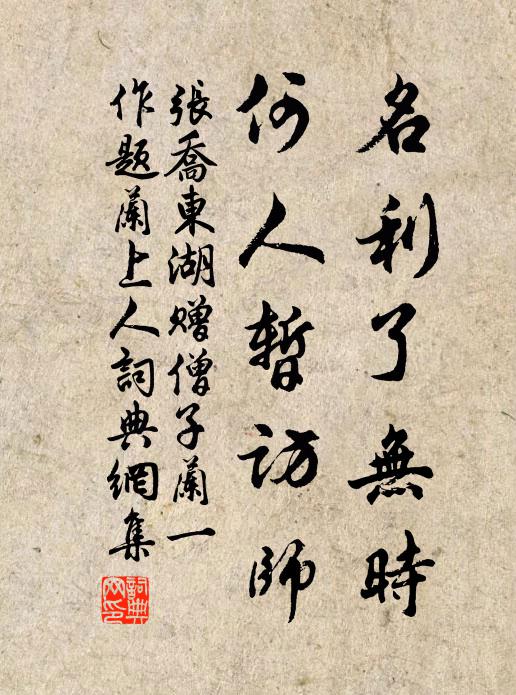 名利了無時
何人暫訪師
張喬東湖贈僧子蘭一
作題蘭上人詞典網集
詞典網印